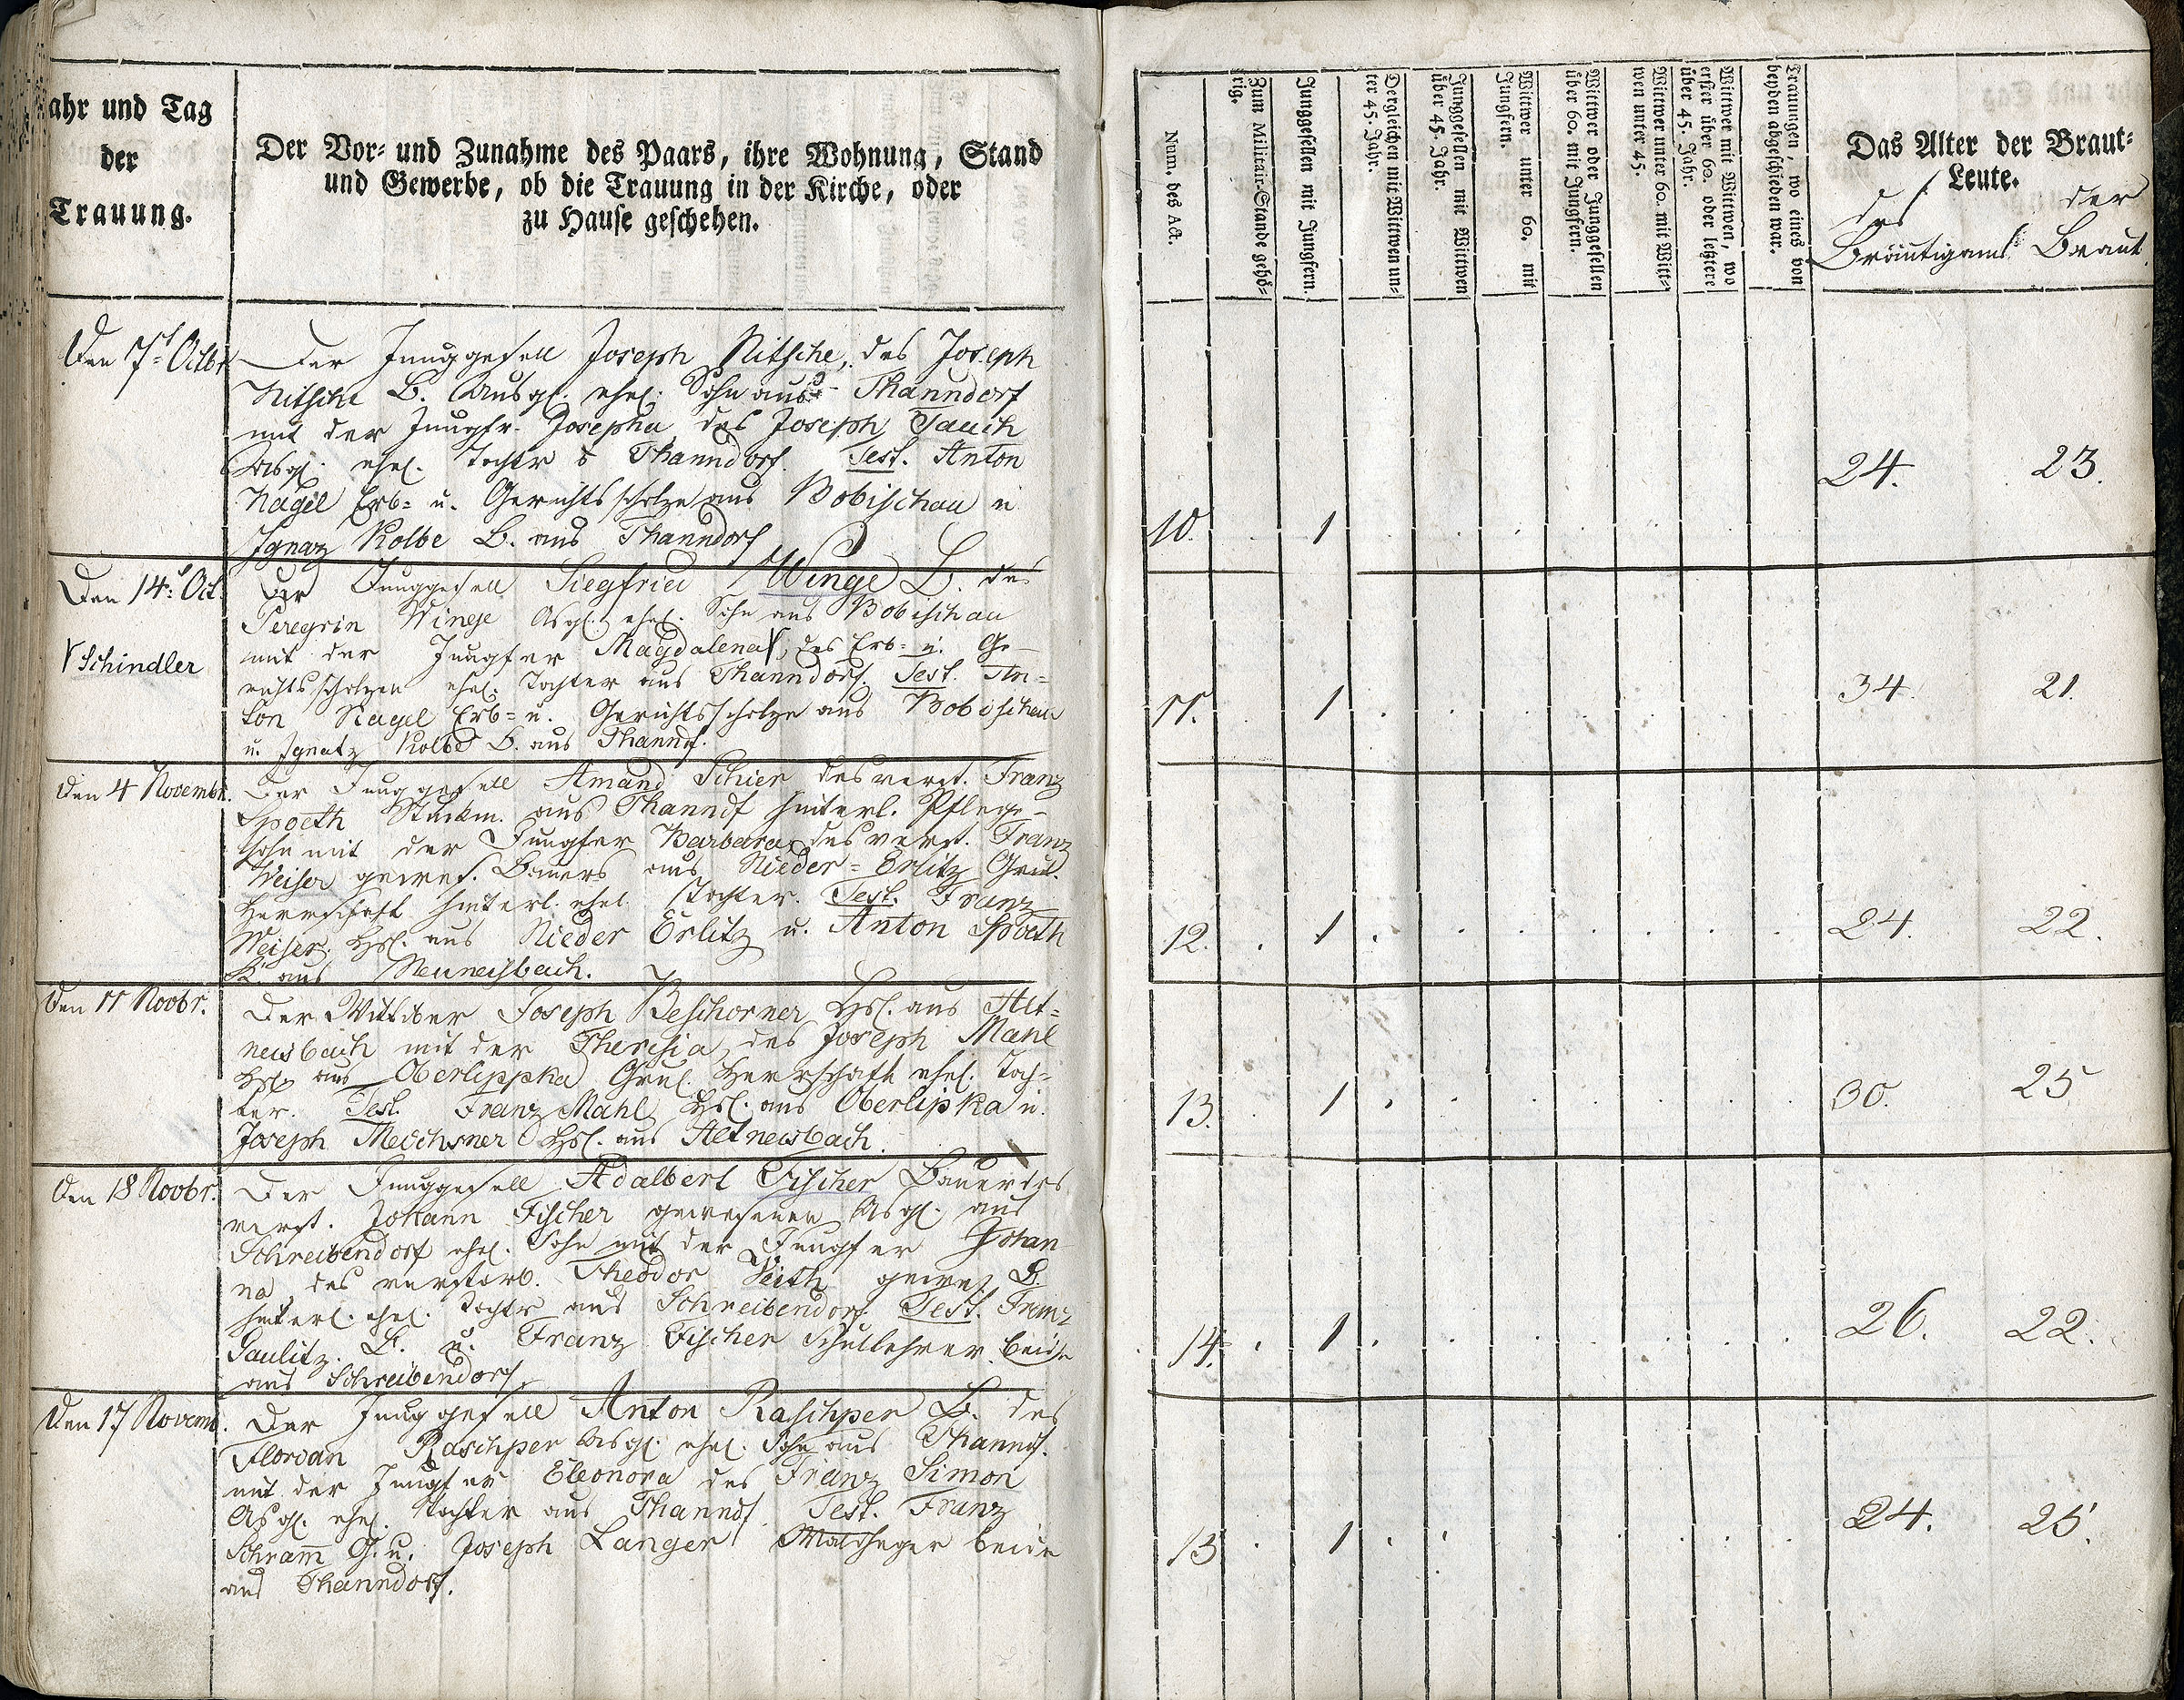 ahr und Tag
der
Trauung.
Der Vor- und Zunahme des Paars, ihre Wohnung, Stand
und Gewerbe, ob die Trauung in der Kirche, oder
zu Hause geschehen.
Num. des Act.
Zum Militair-Stande gehö-
rig.
Junggesellen mit Jungfern.
Dergleichen mit Wittwen un-
ter 45. Jahr.
Junggesellen mit Wittwen
über 45. Jahr.
Wittwer unter 60. mit
Jungfern.
Wittwer oder Junggesellen
über 60. mit Jungfern.
Wittwer unter 60. mit Witt-
wen unter 45.
Wittwer mit Wittwen, wo
erster über 60. oder letztere
über 45. Jahr.
Trauungen, wo eines von
beyden abgeschieden war.
Das Alter der Braut-
Leute.
des der
Bräutigams Braut
Den 7t Octbr
Der Junggesell Joseph Nitsche, des Joseph
Nitsche B. Ausgl. ehel. Sohn aus Thanndorf
mit der Jungfr. Josepha, des Joseph Tauch
Ausgl. ehel. Tochtr Thanndorf. Test. Anton
Nagel Erb- u. Gerichtsscholze aus Bobischau u
Ignaz Kolbe B. aus Thanndorf
10. 1 24. 23.
Den 14t Oct.
Der Junggesell Siegfried Winge B. des
Peregrin Winge Asgl. ehel. Sohn aus Bobischau
mit der Jungfer Magdalena, des Erb- u. Ge-
richtsscholzen ehel. Tochter aus Thanndorf. Test. An-
ton Nagel Erb- u. Gerichtsscholze aus Bobischau
u. Ignatz Kolbe B. aus Thanndf.
Schindler
11. 1 34. 21.
Den 4 Novembr.
Der Junggesell Amand Schier des verst. Franz
Spoeth Stückm. aus Thanndf hinterl. Pflege-
sohn mit der Jungfer Barbara, des verst. Franz
Weiser gewes. Bauers aus Nieder-Erlitz Grul.
Herrschaft hinterl. ehel. Tochter. Test. Franz
Weiser Hsl. aus Nieder Erlitz u. Anton Spoeth
aus Neuneisbach.
12. 1 24. 22.
Den 11 Novbr.
Der Wittiber Joseph Beschorner Hsl. aus Alt-
neisbach mit der Theresia, des Joseph Mahl
Hsl. aus Oberlippka Grul. Herrschaft ehel. Toch-
ter. Test. Franz Mahl Hsl. aus Oberlipka u.
Joseph Meichsner Hsl. aus Altneisbach.
13. 1 30. 25
Den 18 Novbr.
Der Junggesell Adalbert Fischer Bauer des
verst. Johann Fischer gewesenen Asgl. aus
Schreibendorf ehel. Sohn mit der Jungfer Johan
na, des verstorb. Theodor Veith gewes. B.
hinterl. ehel. Tochtr aus Schreibendorf. Test. Franz
Paulitz B. u. Franz Fischer Schullehrer beide
aus Schreibendorf
14. 1 26. 22.
Den 17 Novemb.
Der Junggesell Anton Raschper B. des
Florian Raschper Ausgl. ehel. Sohn aus Thanndf.
mit der Jungfer Eleonora des Franz Simon
Asgl. ehel. Tochter aus Thanndf. Test. Franz
Schram̄ G. u. Joseph Langer Waldheger beide
aus Thanndorf.
13 1 24. 25.